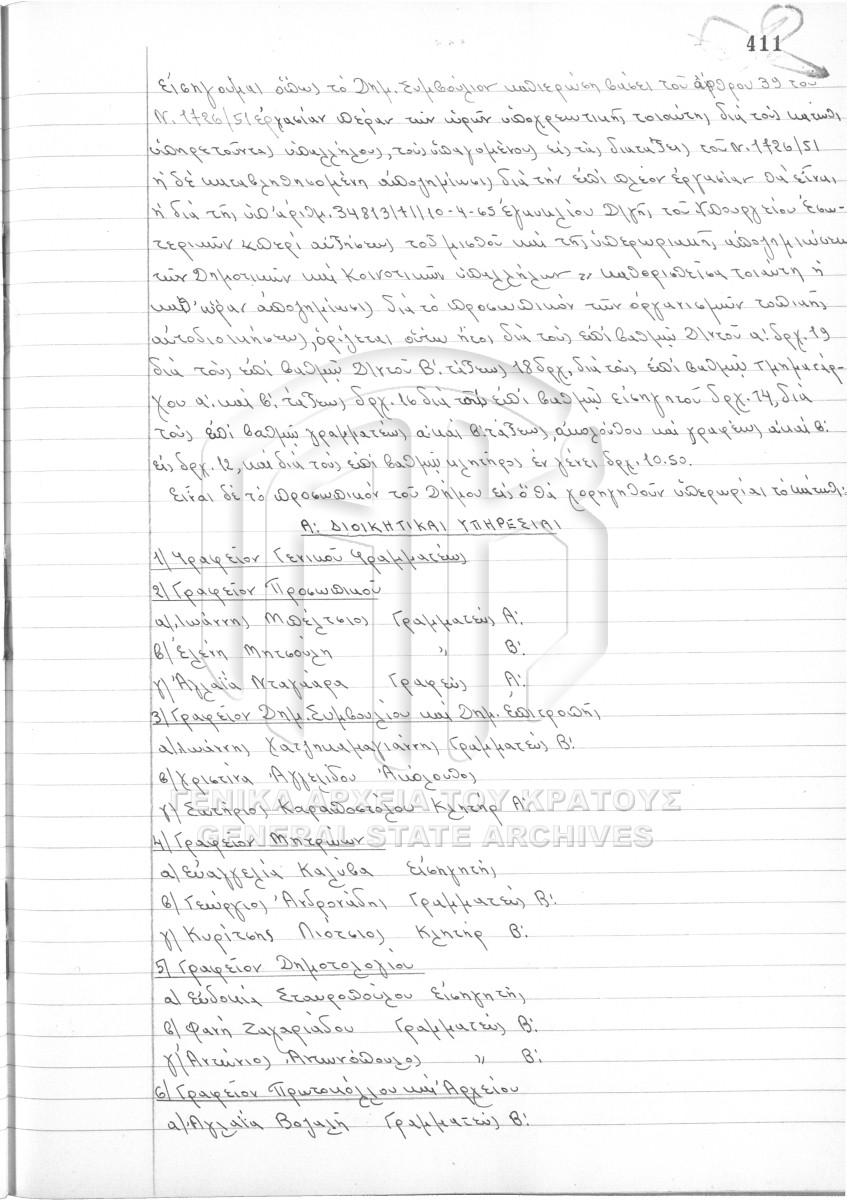 411
εἰσηγοῦμαι ὅπως τό Δημ. Συμβούλιον καθιερώσῃ βάσει τοῦ ἄρθρου 39 τοῦ
Ν. 1726/51 ἐργασίαν πέραν τῶν ὡρῶν ὑποχρεωτικῆς τοιαύτης διά τούς κατωθι
ὑπηρετοῦντας ὑπαλλήλους, τούς ὑπαγομένους εἰς τάς διατάξεις τοῦ Ν. 1726/51
ἡ δέ καταβληθησομένη ἀποζημίωσις διά τήν ἐπί πλέον ἐργασίαν θά εἶναι
ἡ διά τῆς ὑπ' ἀριθμ. 34813/ /10-4-65 ἐγκυκλίου Δ/γῆς τοῦ Ὑπουργείου Ἐσω-
τερικῶν "περί αὐξήσεως τοῦ μισθοῦ καί τῆς ὑπερωριακῆς ἀποζημιώσεως
τῶν Δημοτικῶν καί Κοινοτικῶν ὑπαλλήλων" καθορισθεῖσα τοιαύτη ἡ
καθ' ὥραν ἀποζημίωσις διά τό προσωπικόν τῶν ὀργανισμῶν τοπικῆς
αὐτοδιοικήσεως, ὁρίζεται οὕτω ἤτοι διά τούς ἐπί βαθμῷ Δ/ντοῦ α: δρχ. 19
διά τούς ἐπί βαθμῷ Δ/ντοῦ Β'. τάξεως 18 δρχ, διά τούς ἐπί βαθμῷ τμηματάρ-
χου α'. καί β'. τάξεως δρχ. 16 διά τούς ἐπί βαθμῷ εἰσηγητοῦ δρχ. 14, διά
τούς ἐπί βαθμῷ γραμματέως α: καί β: τάξεως, ἀκολούθου καί γραφέως α: καί β:
εἰς δρχ. 12, καί διά τούς ἐπί βαθμῷ κλητῆρος ἐν γένει δρχ. 10.50.
Εἶναι δέ τό προσωπικόν τοῦ Δήμου εἰς ὅ θά χορηγηθοῦν ὑπερωρίαι τό κάτωθι:
Α: ΔΙΟΙΚΗΤΙΚΑΙ ΥΠΗΡΕΣΙΑΙ
1/ Γραφεῖον Γενικοῦ Γραμματέως
2/ Γραφεῖον Προσωπικοῦ
α/ Ἰωάννης Μπέλτσιος Γραμματεύς Α':
β/ Ἑλένη Μητσούλη " Β':
γ/ Ἀγλαΐα Νταγκάρα Γραφεύς Α':
3/ Γραφεῖον Δημ. Συμβουλίου καί Δημ. Ἐπιτροπῆς
α/ Ἰωάννης Χατζηκαμαγιάννης Γραμματεύς Β':
β/ Χριστίνα Ἀγγελίδου Ἀκόλουθος
γ/ Σωτήριος Καραποστόλου Κλητήρ Α':
ΓΕΝΙΚΑ ΑΡΧΕΙΑ ΤΟΥ ΚΡΑΤΟΥΣ
GENERAL STATE ARCHIVES
4/ Γραφεῖον Μητρώων
α/ Εὐαγγελία Καλύβα Εἰσηγητής
β/ Γεώργιος Ἀνδρονιάδης Γραμματεύς Β':
γ/ Κυρίτσης Λιότσιος Κλητήρ Β':
5/ Γραφεῖον Δημοτολογίου
α/ Εὐδοκία Σταυροπούλου Εἰσηγητής
β/ Φανή Ζαχαριάδου Γραμματεύς Β':
γ/ Ἀντώνιος Ἀντωνόπουλος " Β':
6/ Γραφεῖον Πρωτοκόλλου καί Ἀρχείου
α/ Ἀγλαΐα Βογαλῆ Γραμματεύς Β':